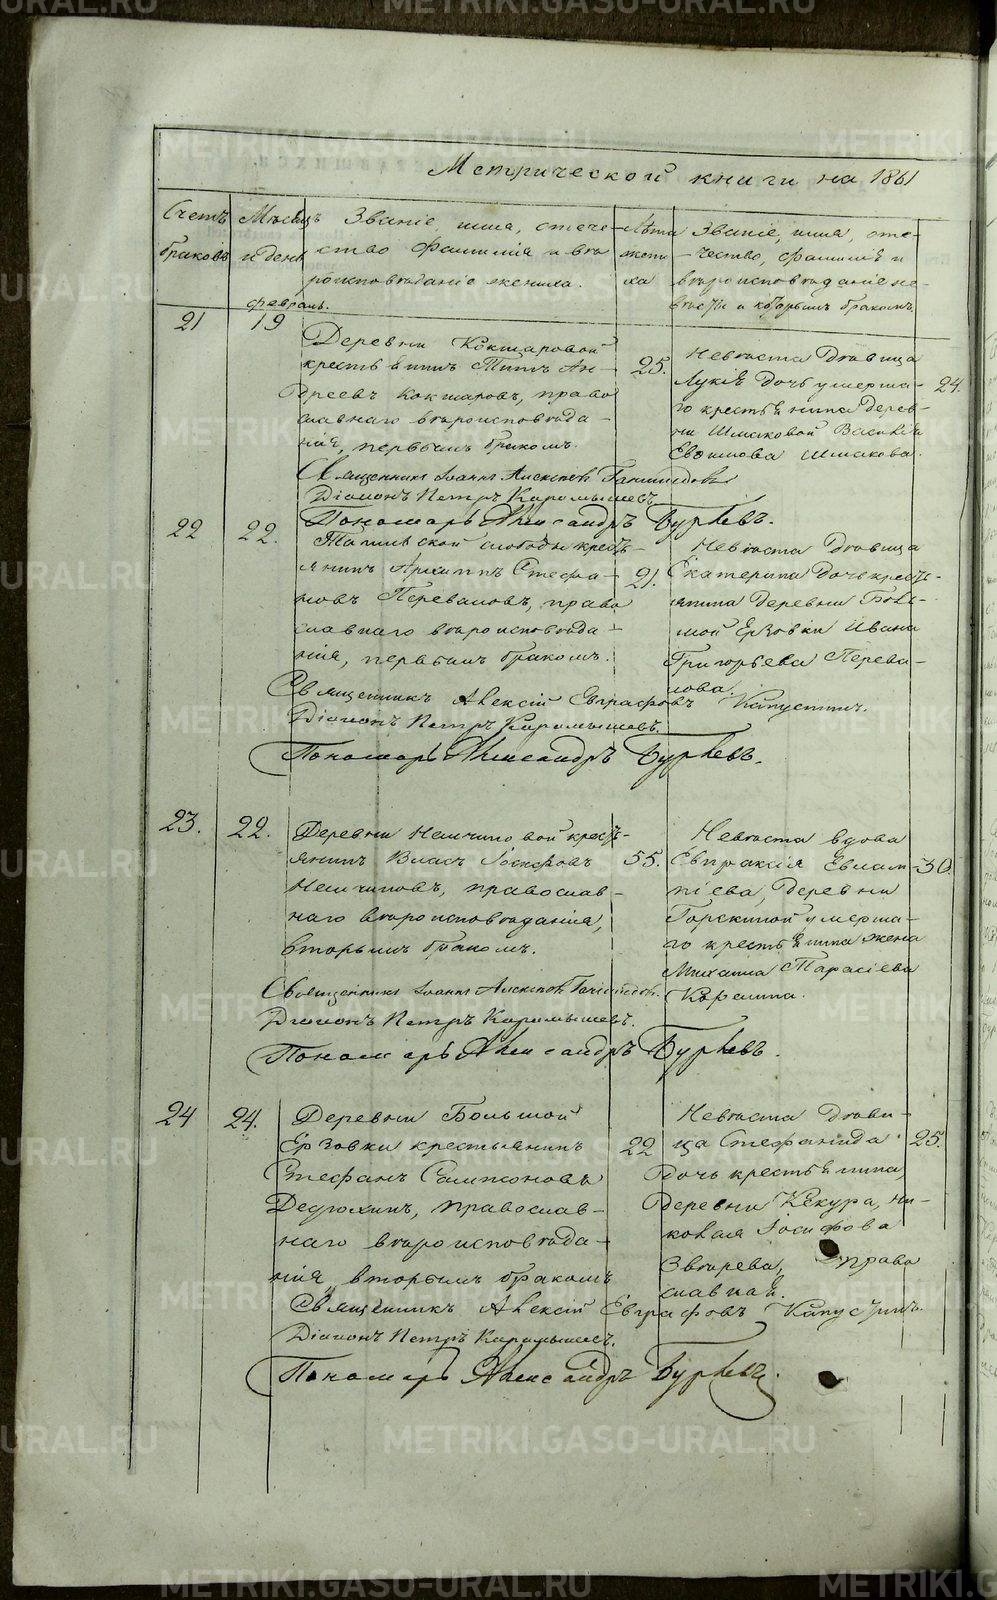 Метрической книги на 1861
Счетъ браковъ
Мѣсяцъ и день
Званіе, имя, отече-
ство фамилія и вѣ-
роисповѣданіе жениха.
Лѣта жени-
ха
Званіе, имя, оте-
чество, фамилія и
вѣроисповѣданіе не-
вѣсты и которымъ бракомъ.
февраль.
21
19
Деревни Кокшаровой
крестьянинъ Титъ Ан-
дреевъ Кокшаровъ, право
славнаго вѣроисповѣда-
нія, первымъ бракомъ.
25.
Невѣста дѣвица
Лукія дочь умерша-
го крестьянина дерев-
ни Шмаковой Василія
Евдимова Шмакова.
24.
Священникъ Іоаннъ Алексѣевъ
Діаконъ Петръ Карамышевъ
Пономарь Александръ Бурлевъ.
22
22.
слободы кресть-
янинъ Архиппъ Стефа-
новъ Переваловъ, право
славнаго вѣроисповѣда-
нія, первымъ бракомъ.
21.
Невѣста дѣвица
Екатерина дочь кресть-
янина деревни Боль-
шой Ерзовки Ивана
Григорьева Перева-
лова.
Священникъ Алексій Евграфовъ Капустинъ.
Діаконъ Петръ Карамышевъ.
Пономарь Александръ Бурлевъ.
23.
22.
Деревни Немчиновой кресть-
янинъ Власъ Іосифовъ
Немчиновъ, православ-
наго вѣроисповѣданія,
вторымъ бракомъ.
55.
Невѣста вдова
Евпраксія Евлам-
піева, деревни
Горскиной умерша-
го крестьянина жена
Михаила Тарасіева
Карелина.
30.
Священникъ Іоаннъ Алексѣевъ
Діаконъ Петръ Карамышевъ.
Пономарь Александръ Бурлевъ.
24
24.
Деревни Большой
Ерзовки крестьянинъ
Стефанъ Сампсоновъ
Дедюхинъ, православ-
наго вѣроисповѣда-
нія, вторымъ бракомъ
22
Невѣста дѣви-
ца Стефанида
дочь крестьянина,
деревни Кекура, Ни-
колая Іосифова
Звѣрева, право
славная.
25.
Священникъ Алексій Евграфовъ Капустинъ.
Діаконъ Петръ Карамышевъ.
Пономарь Александръ Бурлевъ.
METRIKI.GASO-URAL.RU